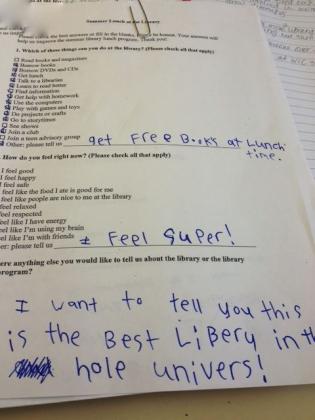 Summer Lunch at the Library
best answers or fill in the blanks. Your answers will
help us improve the summer library lunch program. Thank you.
1. Which of these things can you do at the library? (Please check all that apply)
Read books and magazines
Borrow books
Borrow DVDs and CDs
Get lunch
Talk to a librarian
Learn to read better
Find information
Get help with homework
Use the computers
Play with games and toys
Do projects or crafts
Go to storytimes
See shows
Join a club
Join a teen advisory group
Other: please tell us get Free Books at Lunch
time.
How do you feel right now? (Please check all that apply)
I feel good
feel happy
feel safe
feel like the food I ate is good for me
feel like people are nice to me at the library
feel relaxed
feel respected
feel like I have energy
feel like I'm using my brain
feel like I'm with friends
er: please tell us I Feel Super!
ere anything else you would like to tell us about the library or the library
rogram?
I want to tell you this
is the Best LiBery in th
hole univers!